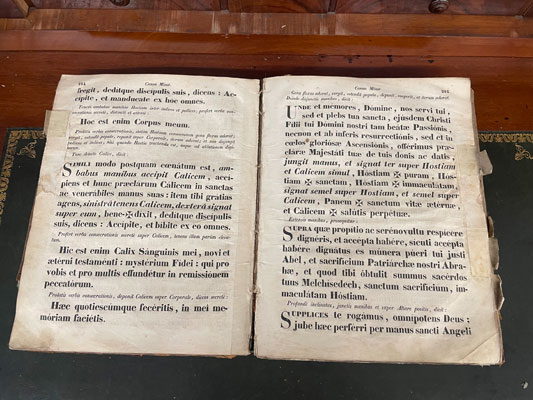 Canon Missæ
fregit, deditque discipulis suis, dicens : Ac-
cipite, et manducate ex hoc omnes.
Hoc est enim Corpus meum.
Tunc detecto Calice, dicit :
SIMILI modo postquam cœnatum est, am-
babus manibus accipit Calicem, acci-
piens et hunc præclarum Calicem in sanctas
ac venerabiles manus suas : item tibi gratias
agens, sinistrâ tenens Calicem, dexterâ signat
super eum, bene✠dixit, deditque discipulis
suis, dicens : Accipite, et bibite ex eo omnes.
Profert verba consecrationis secretè super Calicem, tenens illum parùm eleva-
tum.
Hic est enim Calix Sánguinis mei, novi et
ætérni testaménti : mystérium Fídei : qui pro
vobis et pro multis effundétur in remissiónem
peccatórum.
Prolatis verbis consecrationis, deponit Calicem super Corporale, dicens secretè :
Hæc quotiescúmque fecéritis, in mei me-
móriam faciétis.
Canon Missæ
Genu flexus adorat, surgit, ostendit populo, deponit, cooperit, et iterum adorat.
Deinde disjunctis manibus, dicit :
UNDE et mémores, Dómine, nos servi tui,
sed et plebs tua sancta, ejúsdem Christi
Fílii tui Dómini nostri tam beátæ Passiónis,
necnon et ab ínferis resurrectiónis, sed et in
cœlos gloriósæ Ascensiónis, offérimus præ-
cláræ Majestáti tuæ de tuis donis ac datis,
jungit manus, et signat ter super Hostiam
et Calicem simul, Hóstiam ✠ puram, Hós-
tiam ✠ sanctam, Hóstiam ✠ immaculátam,
signat semel super Hostiam, et semel super
Calicem, Panem ✠ sanctum vitæ ætérnæ,
et Cálicem ✠ salútis perpétuæ.
Extensis manibus, prosequitur :
SUPRA quæ propítio ac seréno vultu respícere
dignéris, et accépta habére, sícuti accépta
habére dignátus es múnera púeri tui justi
Abel, et sacrifícium Patriárchæ nostri Abra-
hæ, et quod tibi óbtulit summus sacérdos
tuus Melchísedech, sanctum sacrifícium, im-
maculátam Hóstiam.
Profundè inclinatus, junctis manibus et super Altare positis, dicit :
SUPPLICES te rogámus, omnípotens Deus ;
jube hæc perférri per manus sancti Angeli